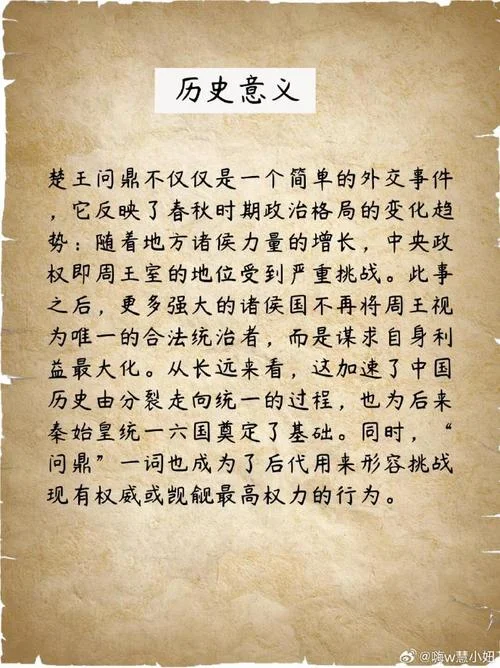 历史意义
楚王问鼎不仅仅是一个简单的外交事件
，它反映了春秋时期政治格局的变化趋
势：随着地方诸侯力量的增长，中央政
权即周王室的地位受到严重挑战。此事
之后，更多强大的诸侯国不再将周王视
为唯一的合法统治者，而是谋求自身利
益最大化。从长远来看，这加速了中国
历史由分裂走向统一的过程，也为后来
秦始皇统一六国奠定了基础。同时，“
问鼎”一词也成为了后代用来形容挑战
现有权威或觊觎最高权力的行为。
@嗨w慧小妞